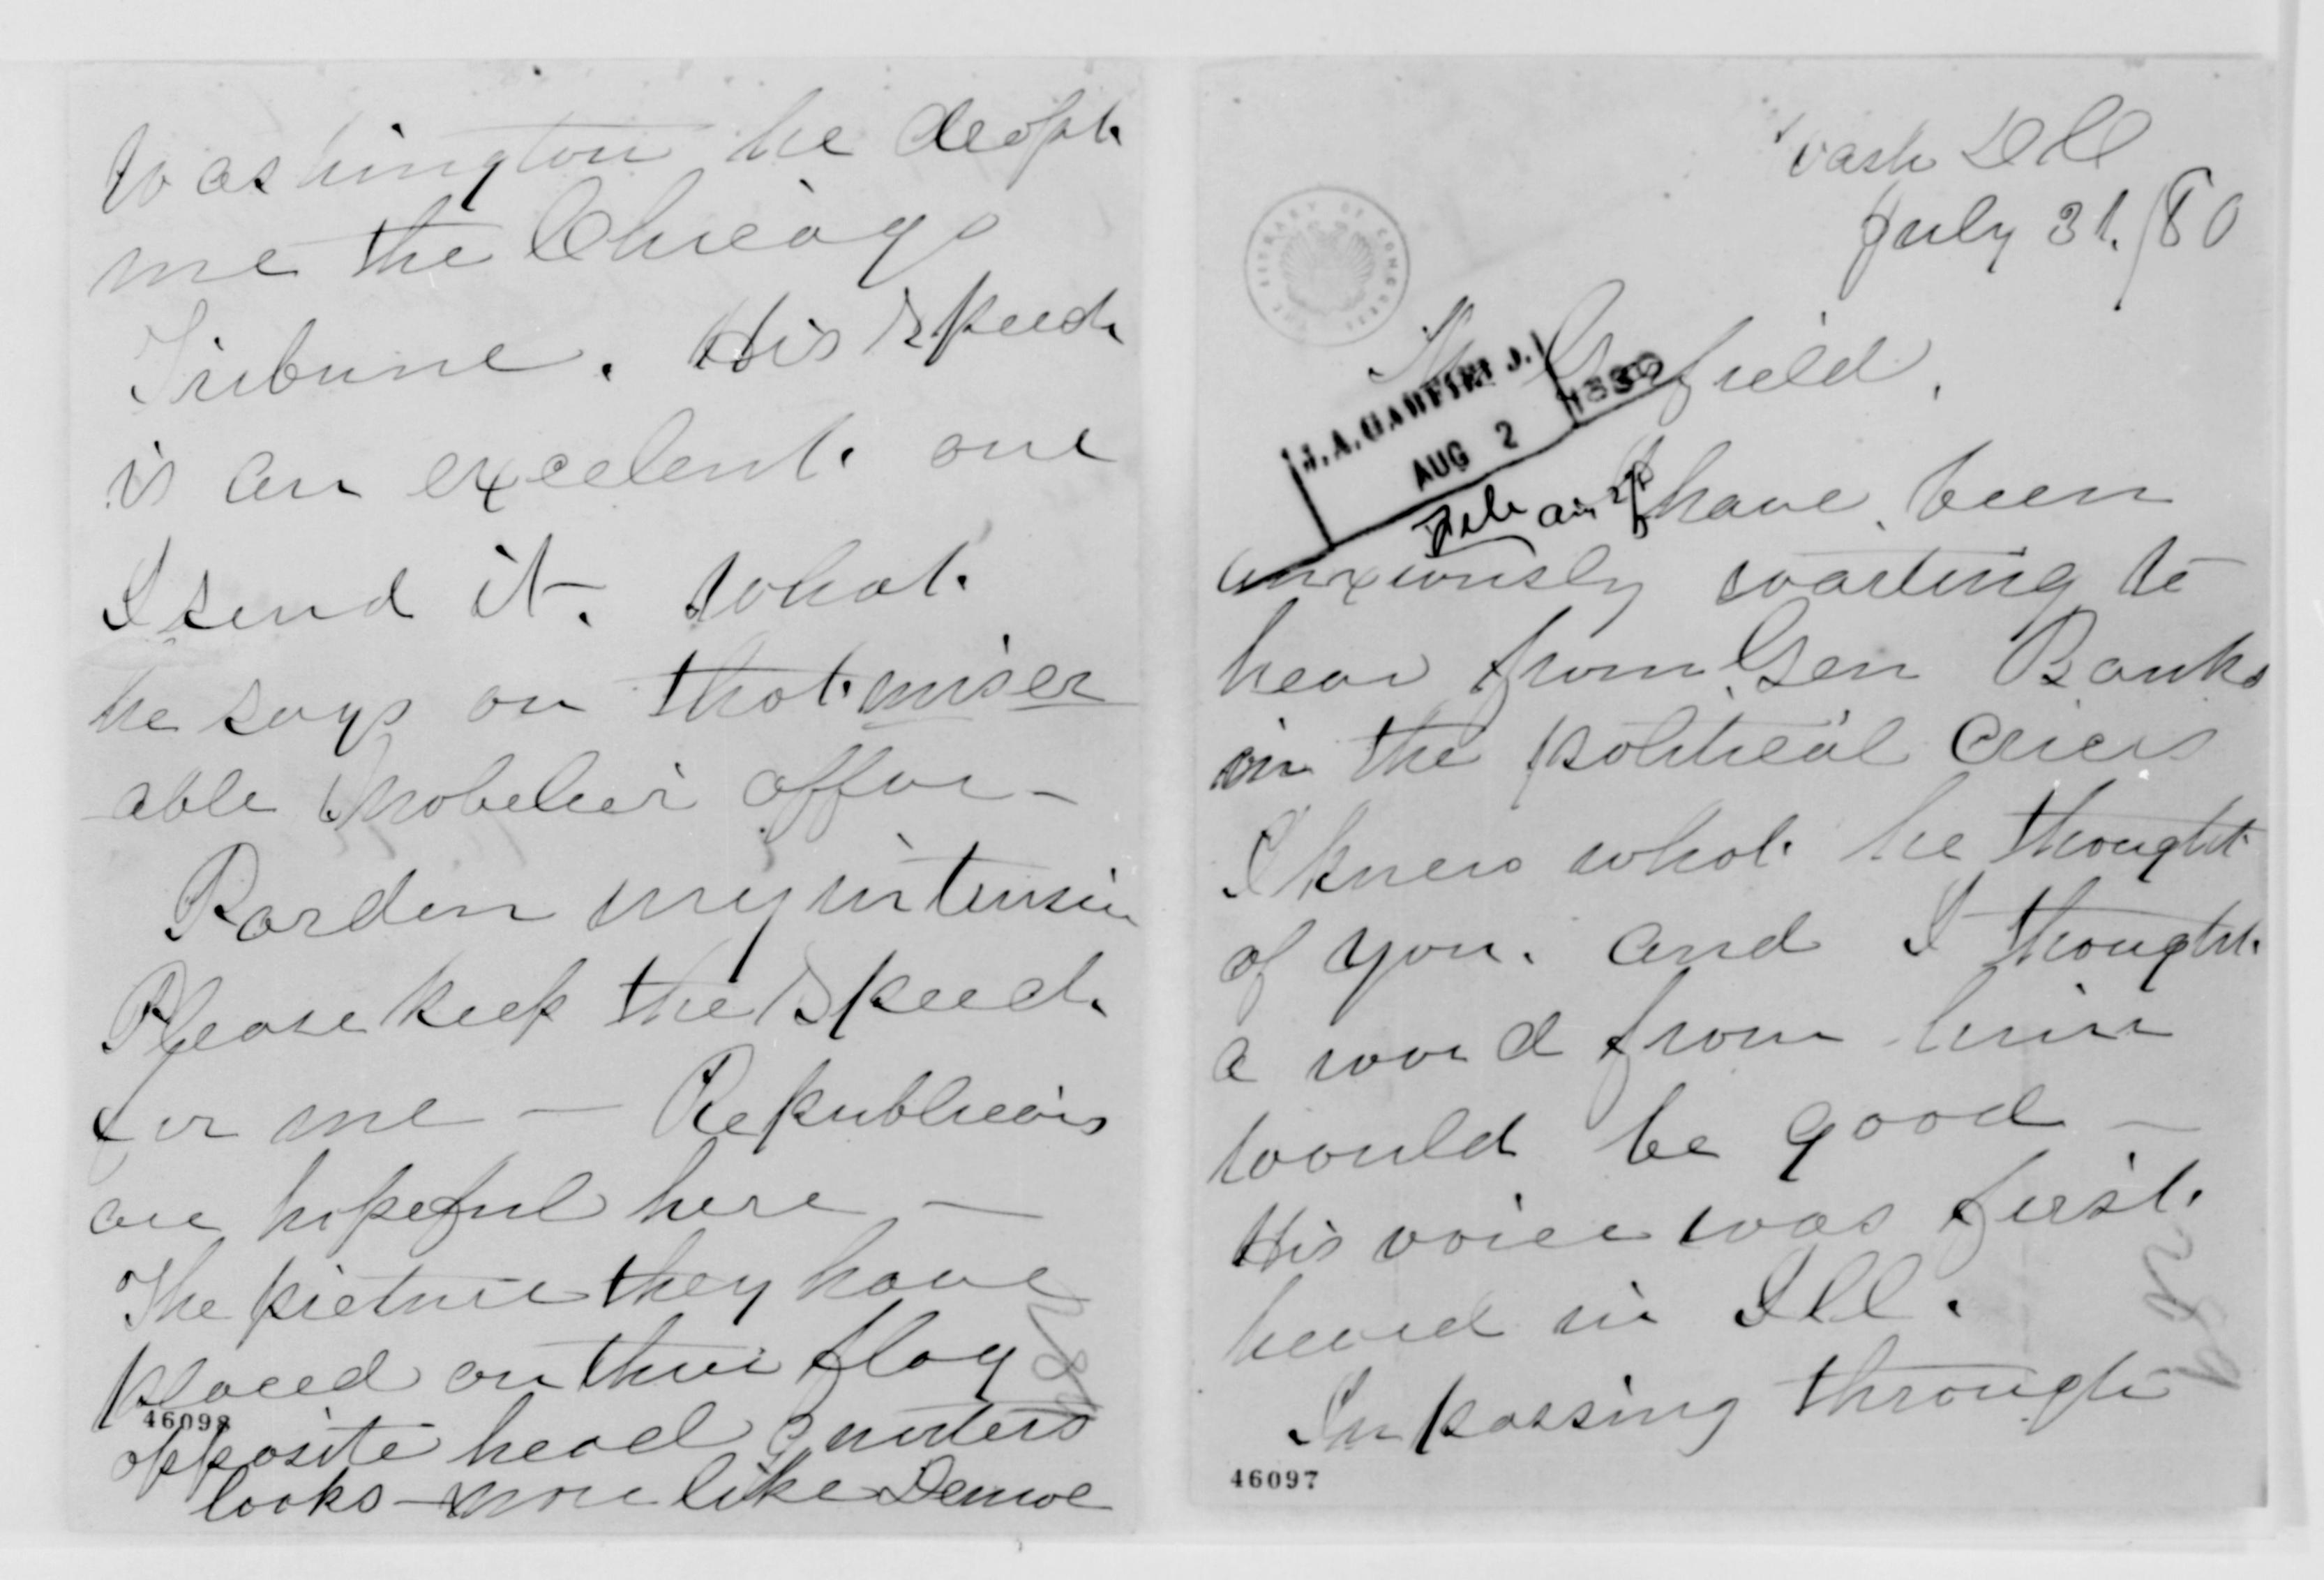 Wash DC
July 31. /80
THE LIBRARY OF CONGRESS
Garfield.
J. A. GARFIELD.
AUG 2 1880
I have been
anxiously waiting to
hear from Gen Banks
in the political crises
I knew what he thought
of you. and I thought
a word from him
would be good —
His voice was first
heard in Ill.
In passing through
46097
Washington he
me the Chicago
Tribune. His Speech
is an excelent one
I send it. What
he says on that miser
able Mobelier affair —
Pardon my
Please keep the Speech
for me — Republicans
are hopeful here —
The picture they have
placed on their flag
46098
opposite head quarters
looks more like